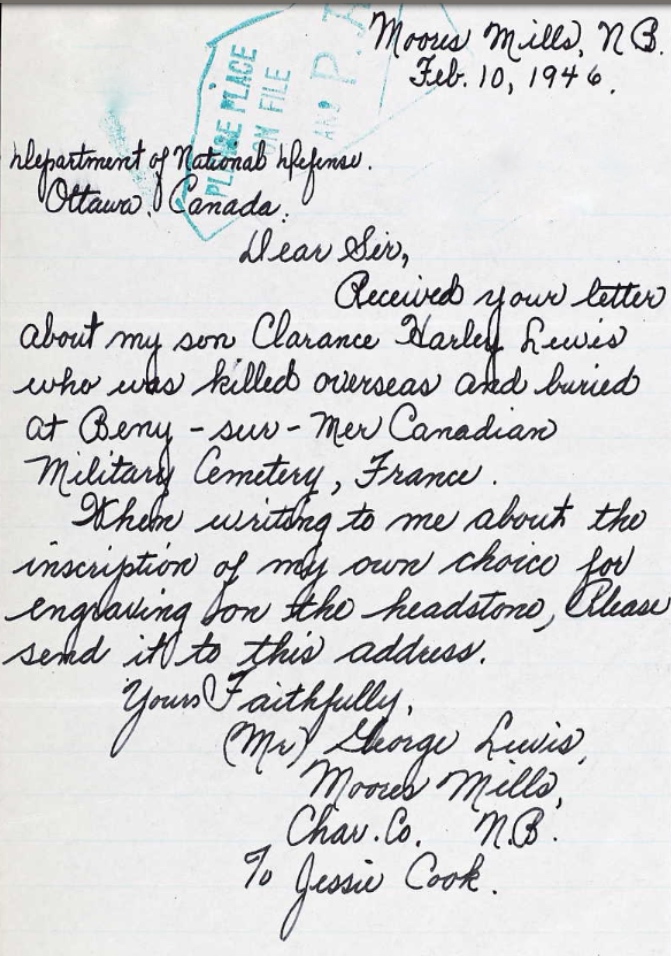 Moores Mills, N.B.
Feb. 10, 1946.
PLEASE PLACE
ON FILE
AND P.A.
Department of National Defense.
Ottawa, Canada.
Dear Sir,
Received your letter
about my son Clarance Harley Lewis
who was killed overseas and buried
at Beny-sur-Mer Canadian
Military Cemetery, France.
When writing to me about the
inscription of my own choice for
engraving on the headstone, Please
send it to this address.
Yours Faithfully,
(Mr) George Lewis,
Moores Mills,
Char. Co. N.B.
% Jessie Cook.